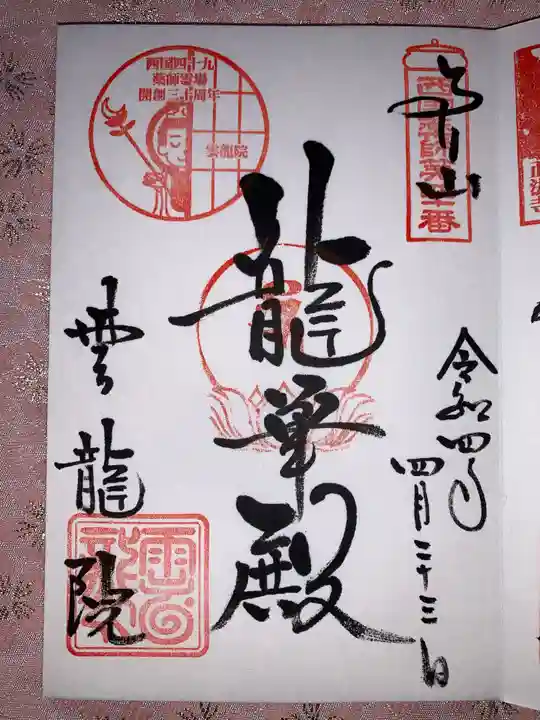 泉山
西国薬師第四十番
令和四年
四月二十三日
龍華殿
西国四十九
薬師霊場
開創三十周年
雲龍院
雲龍院